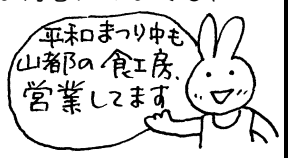 平和まつり中も
山都の食工房、
営業してます